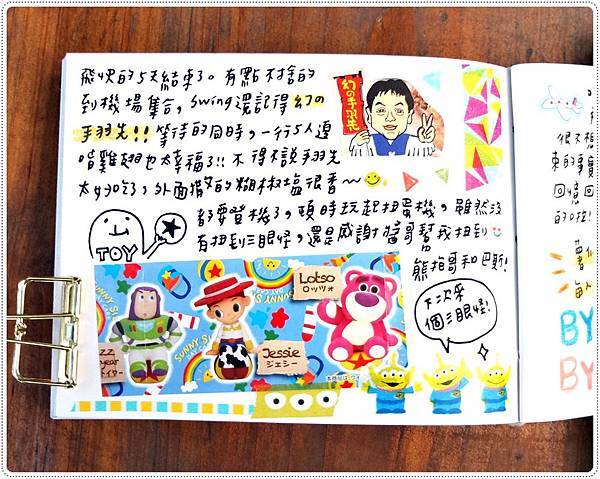 飛快的5天結束了。有點不捨的
到機場集合，swing還記得幻の
手羽先!! 等待的同時，一行5人邊
啃雞翅也太幸福了!! 不得不說手羽先
太好吃了，外面撒的糊椒塩很香～
都要登機了，頓時玩起扭蛋機，雖然沒
有扭到三眼怪，還是感謝 幫我扭到
熊抱哥和巴斯!
幻の手羽先
TOY
下次來
個三眼怪!
Lotso
ロッツォ
Jessie
ジェシー
SUNNY
SUNNY
SUNNY
很不想
束的事實
回憶回
BY
BY